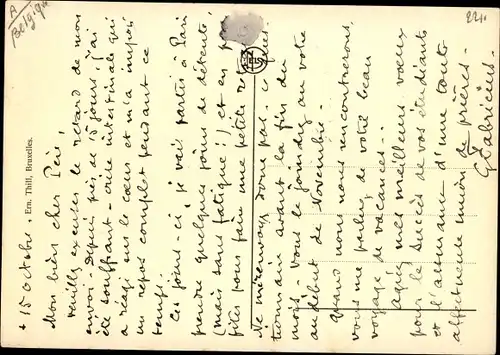 A
Belgique
224
+ 15 octobre
Ern. Thill, Bruxelles.
Mon bien cher Père,
veuillez excuser le retard de mon
envoi. Depuis près de 15 jours, j'ai
été souffrant - crise intestinale qui
a réagi sur le cœur et m'a imposé
un repos complet pendant ce
temps.
Ces jours-ci, je vais partir à Paris
prendre quelques jours de détente,
(mais sans fatigue!) et en
pour faire une petite
Ne m'envoyez donc pas
avant la fin du
mois - vous le joindrez au votre
au début de Novembre.
Quand nous nous rencontrerons,
vous me parlerez de votre beau
voyage de vacances.
Agréez mes meilleurs vœux
pour le succès de vos étudiants
et l'assurance d'une toute
affectueuse union de prières.
G Fabricius